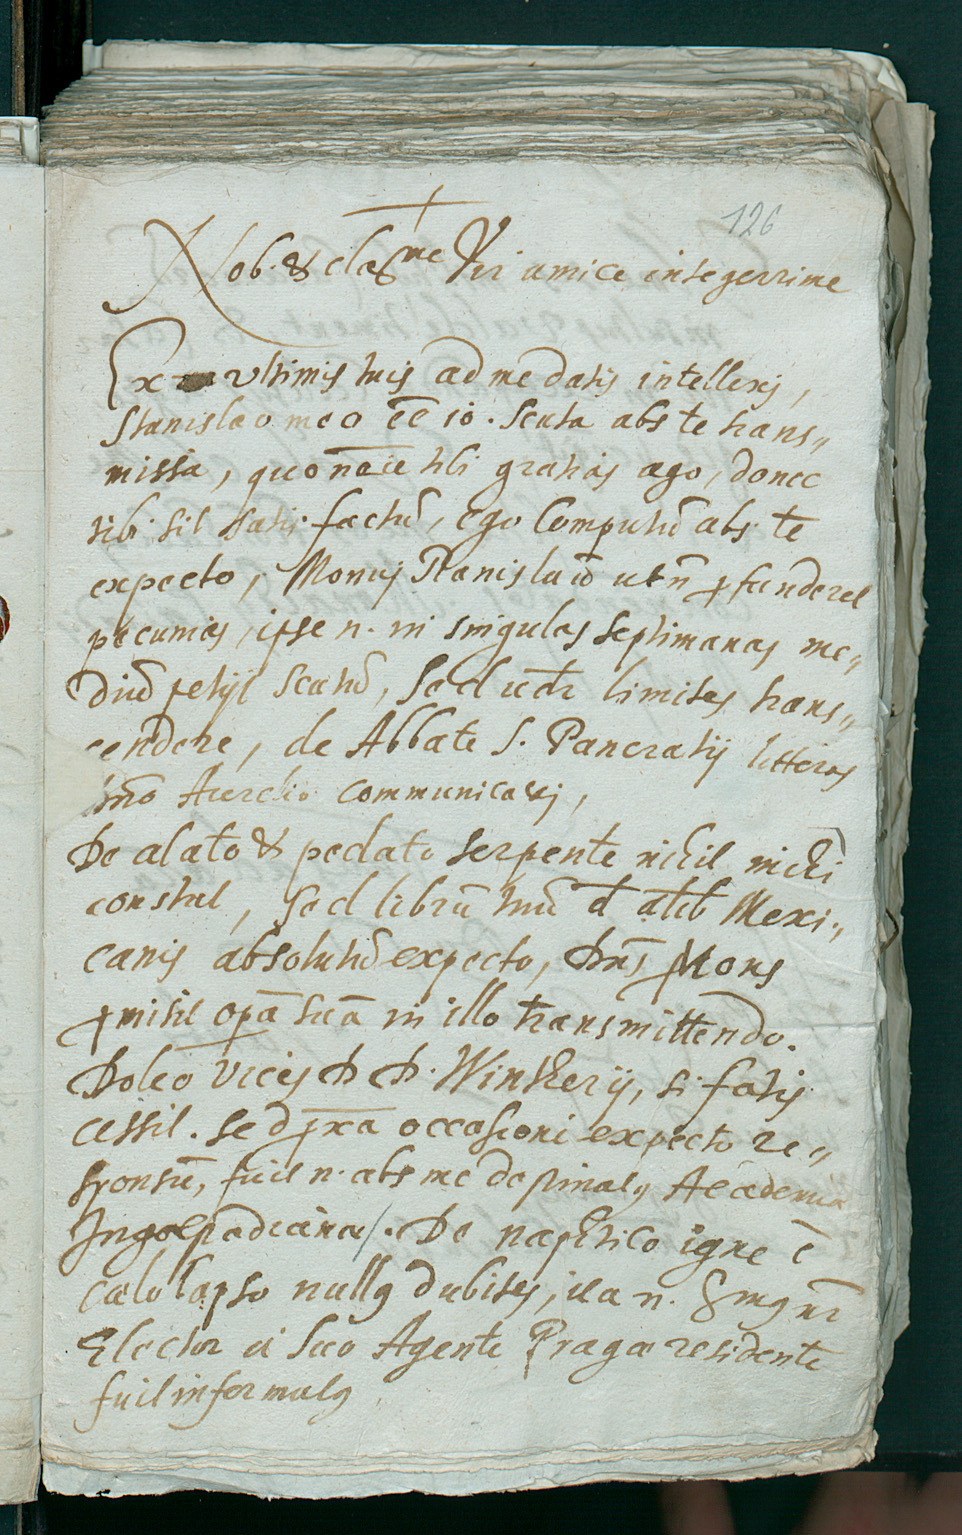 126
Nob. & clariss.me Vir amice integerrime
Ex ultimis tuis ad me datis intellexi,
Stanislao meo ēē 10. scuta abs te trans„
missa, quo nōīe tibi gratias ago, donec
tibi sit satis factū, ego computū abs te
expecto, Monui Stanislaū ut ñ ꝓfunderet
pecunias, ipse n. in singulas septimanas me„
diū petijt scutū, sed limites trans„
cendere, de Abbate S. Pancratij litteras
Aurelio communicavi,
De alato & pedato serpente nihil michi
constat, sed librū tuū Mexi„
canis absolutū expecto, Dns Mons
ꝓmisit opā suā in illo transmittendo.
Doleo vices D D. Wintheri, si fatis
cessit. sed ꝓxa occasione expecto re„
sponsū, fuit n. abs me Academia
De naphtico igne ē
cælo lapso nullꝰ dubites, ita n. nr
Elector a suo Agente Pragæ residente
fuit informatꝰ